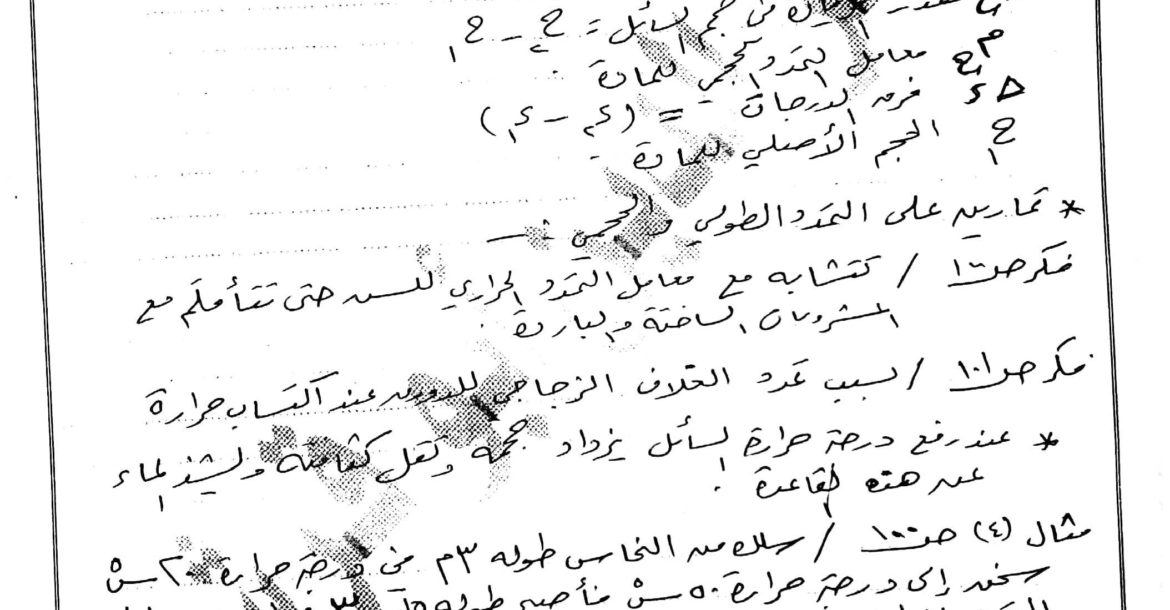 في حجم السائل = ح٢ - ح١
م ح معامل التمدد الحجمي للمادة
Δ د فرق الدرجات = (د٢ - د١)
ح١ الحجم الأصلي للمادة
* تمارين على التمدد الطولي والحجمي :-
فكر صـ١٠٠ / لتتشابه مع معامل التمدد الحراري للسن حتى تتأقلم مع
المشروبات الساخنة والباردة .
فكر صـ١٠١ / بسبب تمدد الغلاف الزجاجي للدورق عند اكتساب حرارة
* عند رفع درجة حرارة السائل يزداد حجمه وتقل كثافته ويشذ الماء
عن هذه القاعدة !
مثال (٤) صـ١٠٠ / سلك من النحاس طوله ٣م في درجة حرارة ٢٠ سْ
سخن إلى درجة حرارة ٥٠ سْ فأصبح طوله